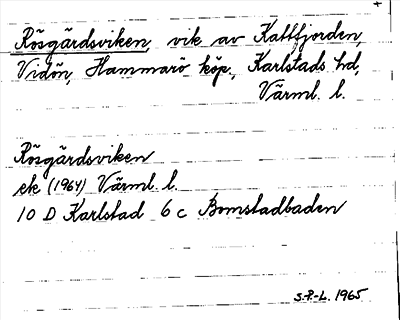 Rösgårdsviken, vik av Kattfjorden,
Vidön, Hammarö köp., Karlstads hd,
Värml. l.
Rösgårdsviken
ek (1964) Värml. l.
10 D Karlstad 6 c Bomstadbaden
S.P.-L. 1965